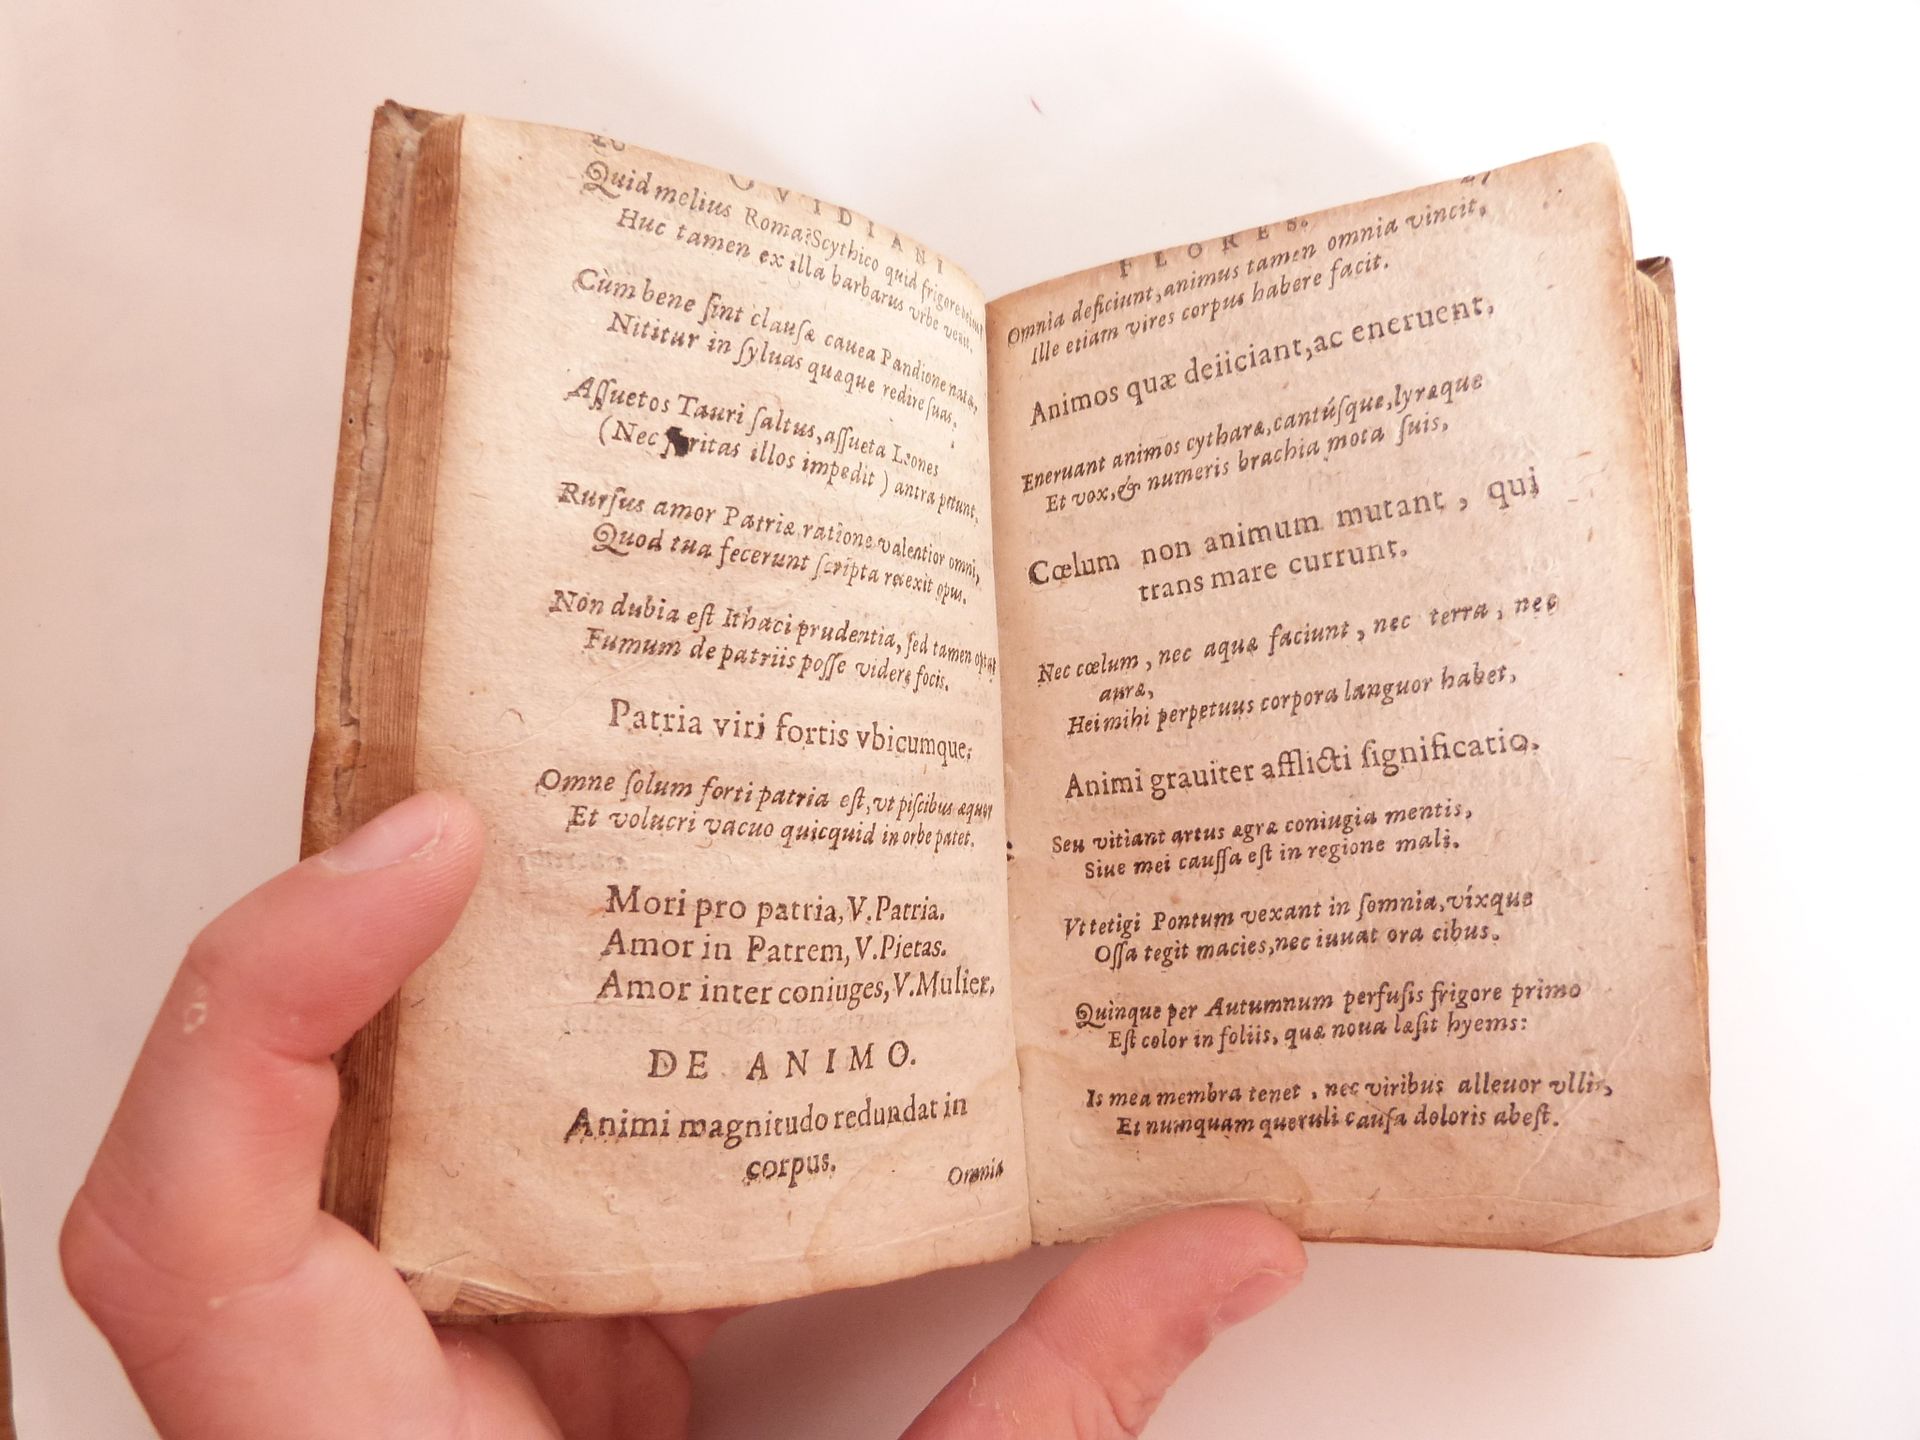 OVIDIANI
Quid melius Roma? Scythico quid frigore
Huc tamen ex illa barbarus vrbe venit.
Cùm bene ſint clauſæ cauea Pandione natæ,
Nititur in ſyluas quæque redire ſuas.
Aſſuetos Tauri ſaltus, aſſueta Leones
(Nec feritas illos impedit) antra petunt,
Rurſus amor Patriæ ratione valentior omni,
Quod tua fecerunt ſcripta retexit opus.
Non dubia eſt Ithaci prudentia, ſed tamen optat
Fumum de patriis poſſe videre focis.
Patria viri fortis vbicumque.
Omne ſolum forti patria eſt, vt piſcibus æquor
Et volucri vacuo quicquid in orbe patet.
Mori pro patria, V. Patria.
Amor in Patrem, V. Pietas.
Amor inter coniuges, V. Mulier.
DE ANIMO.
Animi magnitudo redundat in
corpus.
Omnia
FLORES.
Omnia deficiunt, animus tamen omnia vincit,
Ille etiam vires corpus habere facit.
Animos quæ deiiciant, ac eneruent.
Eneruant animos cytharæ, cantúſque, lyræque
Et vox, & numeris brachia mota ſuis.
Cœlum non animum mutant, qui
trans mare currunt.
Nec cœlum, nec aquæ faciunt, nec terra, nec
auræ,
Hei mihi perpetuus corpora languor habet,
Animi grauiter afflicti ſignificatio.
Seu vitiant artus ægræ coniugia mentis,
Siue mei cauſſa eſt in regione mali.
Vt tetigi Pontum vexant in ſomnia, víxque
Oſſa tegit macies, nec iuuat ora cibus.
Quinque per Autumnum perfuſis frigore primo
Eſt color in foliis, quæ noua læſit hyems:
Is mea membra tenet, nec viribus alleuor vllis,
Et numquam queruli cauſa doloris abeſt.